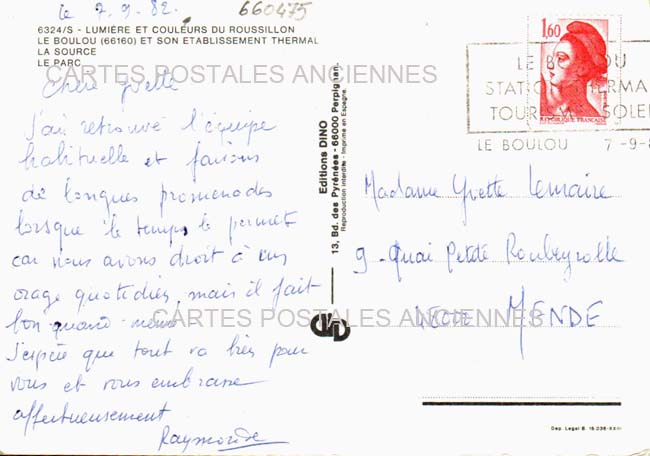 le 7.9.82.
660475
6324/S - LUMIÈRE ET COULEURS DU ROUSSILLON
LE BOULOU (66160) ET SON ETABLISSEMENT THERMAL
LA SOURCE
LE PARC
CARTES POSTALES ANCIENNES
Chère Yvette
J'ai retrouvé l'équipe
habituelle et faisons
de longues promenades
lorsque le temps le permet
car nous avons droit à un
orage quotidien, mais il fait
bon quand même.
J'espère que tout va bien pour
vous et vous embrasse
affectueusement
Raymonde
Editions DINO
13, Bd. des Pyrénées - 66000 Perpignan.
Reproduction interdite - Imprimé en Espagne.
1,60
REPUBLIQUE FRANÇAISE
LE BOULOU
STATION THERMA
TOURISME SOLEI
LE BOULOU 7-9-8
Madame Yvette Lemaire
9 - Quai Petite Roubeyrolle
MENDE
CARTES POSTALES ANCIENNES
Dep. Legal B. 16.036-XXIII